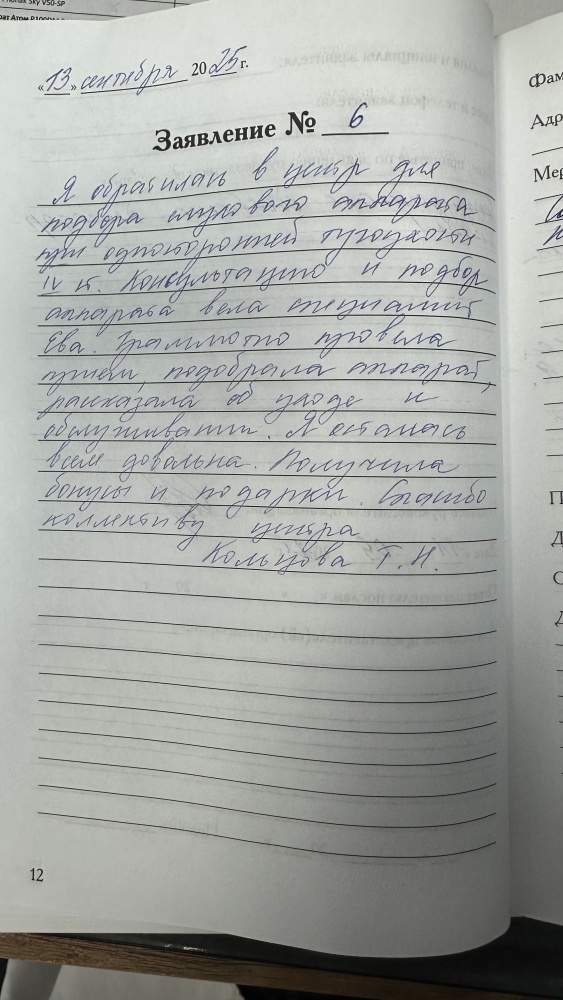 Sky V50-SP
«13» сентября 2025 г.
Заявление № 6
Я обратилась в центр для
подбора слухового аппарата
при односторонней тугоухости
IV ст. Консультацию и подбор
аппарата вела специалист
Ева. Граммотно провела
прием, подобрала аппарат,
рассказала об уходе и
обслуживании. Я осталась
всем довольна. Получила
бонусы и подарки. Спасибо
коллективу центра
Кольцова Т. Н.
12
Фам
Адр
Мер